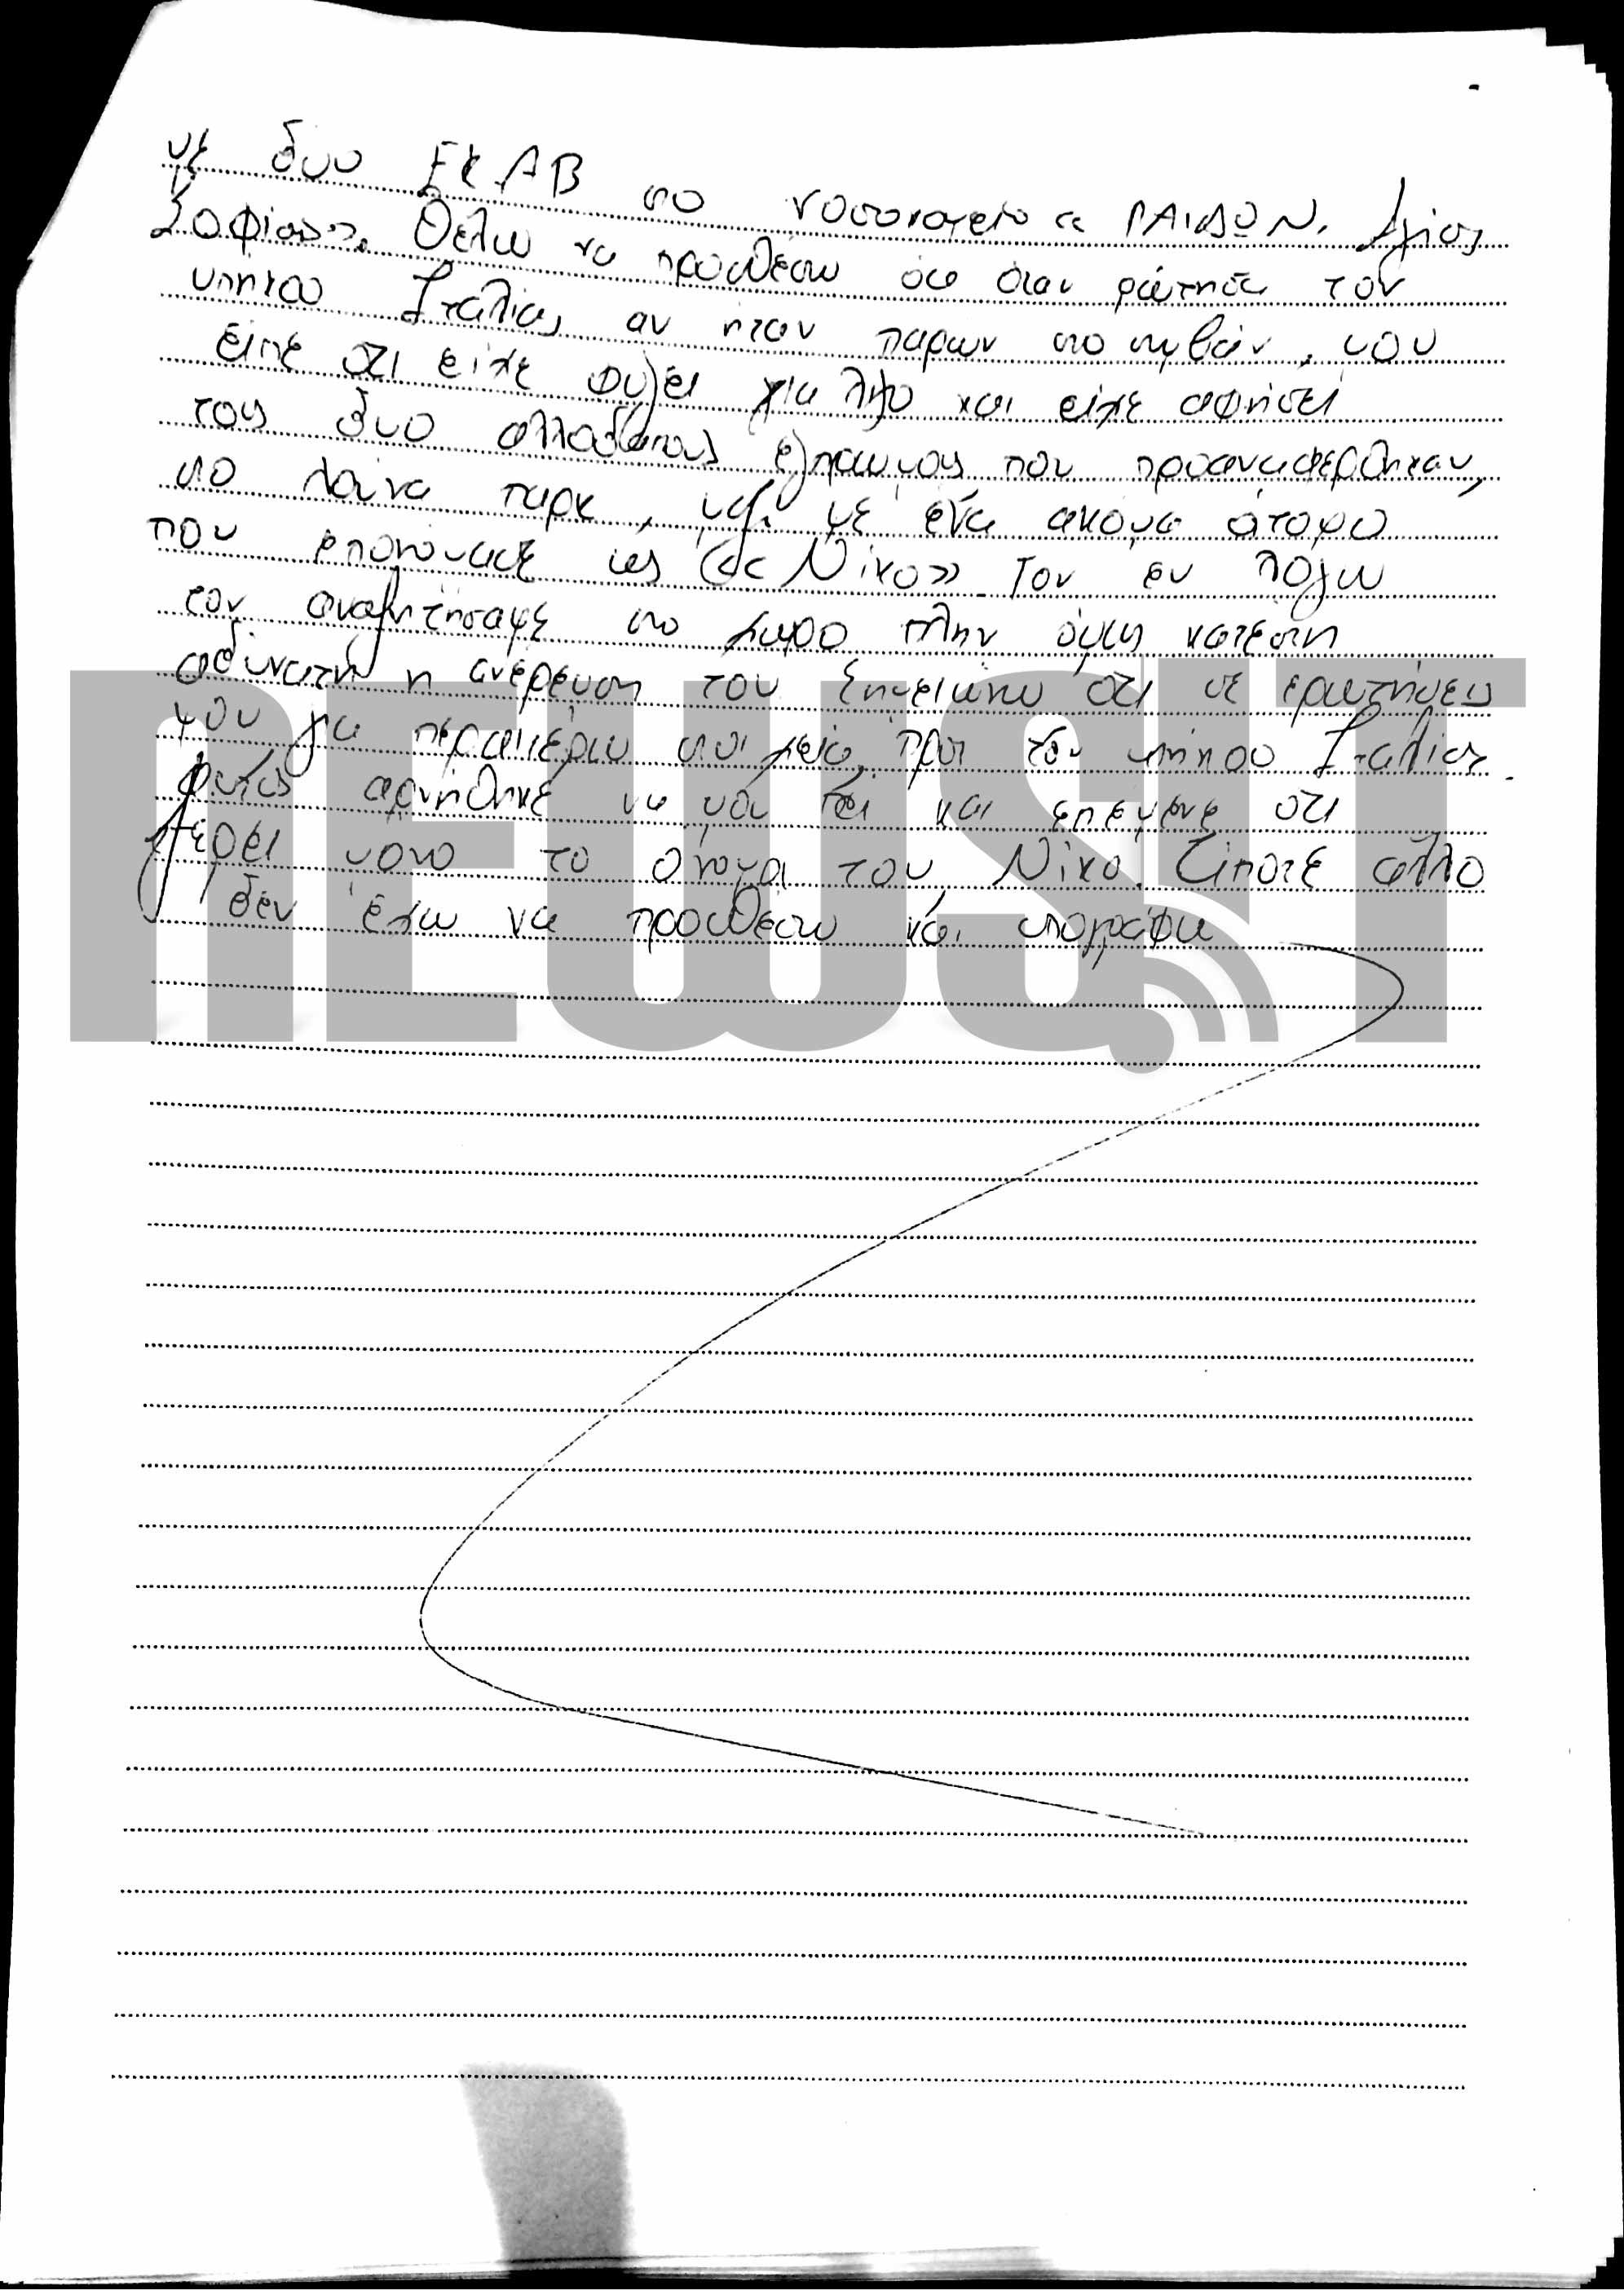 με δυο ΕΚΑΒ στο νοσοκομείο « ΠΑΙΔΩΝ. Αγίας
Σοφίας». Θέλω να προσθέσω ότι όταν ρώτησα τον
υπηκοο Ιταλίας αν ήταν παρων στο συμβάν, μου
είπε ότι είχε φύγει για λίγο και είχε αφήσει
τους δυο αλλοδαπούς εγπαιμους που προαναφερθηκαν,
στο λούνα παρκ, μαζί με ένα ακόμα άτομο
που επονόμασε ως «Νίκο». Τον εν λόγω
τον αναζητήσαμε στο χωρο πλην όμως κατέστη
αδύνατη η ανέρευση του Σημειώνω ότι σε ερωτήσεις
μου για περαιτέρω στοιχεία, προς τον υπήκοο Ιταλίας
αυτός αρνήθηκε να μου πει και επέμενε ότι
ξέρει μονο το όνομα του, Νίκο. Τίποτε άλλο
δεν έχω να προσθέσω και υπογράφω
NEWSIT